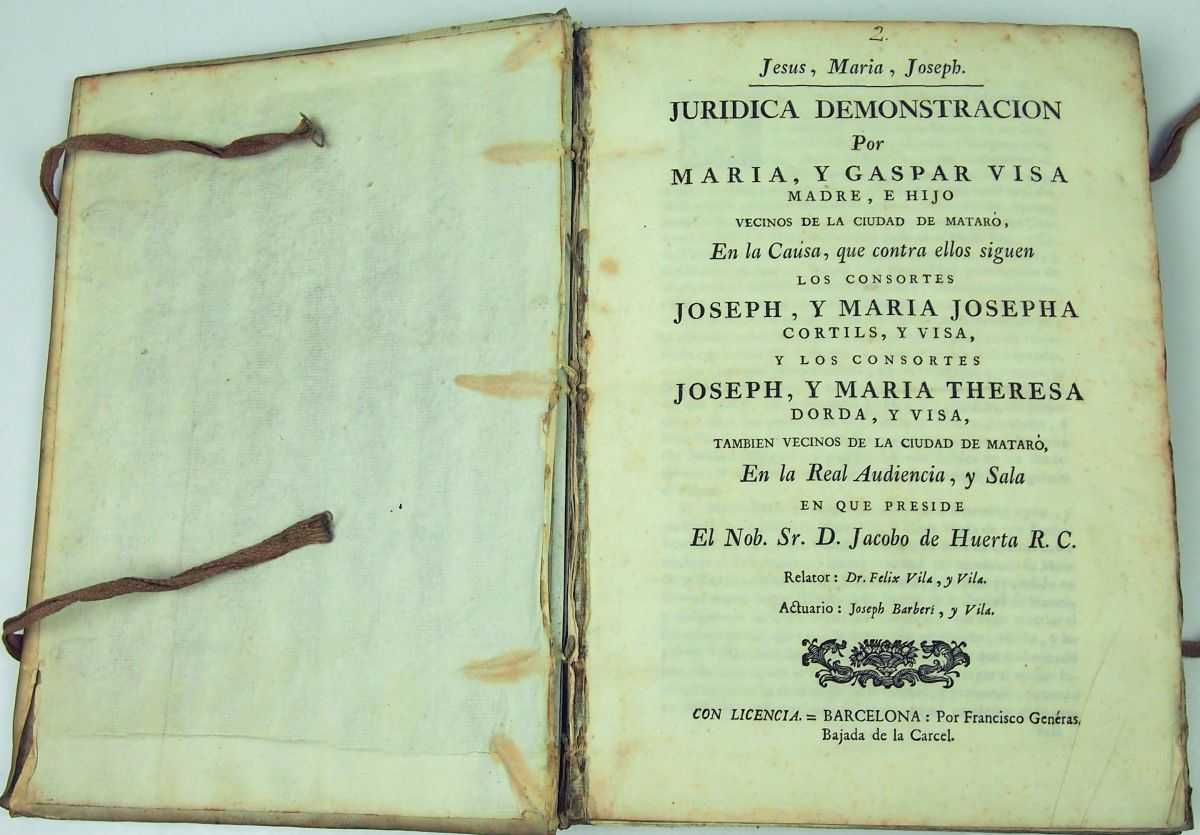 2.
Jesus, Maria, Joseph.
JURIDICA DEMONSTRACION
Por
MARIA, Y GASPAR VISA
MADRE, E HIJO
VECINOS DE LA CIUDAD DE MATARÒ,
En la Caúsa, que contra ellos siguen
LOS CONSORTES
JOSEPH, Y MARIA JOSEPHA
CORTILS, Y VISA,
Y LOS CONSORTES
JOSEPH, Y MARIA THERESA
DORDA, Y VISA,
TAMBIEN VECINOS DE LA CIUDAD DE MATARÒ,
En la Real Audiencia, y Sala
EN QUE PRESIDE
El Nob. Sr. D. Jacobo de Huerta R. C.
Relator: Dr. Felix Vila, y Vila.
Actuario: Joseph Barberí, y Vila.
CON LICENCIA. = BARCELONA: Por Francisco Genéras,
Bajada de la Carcel.